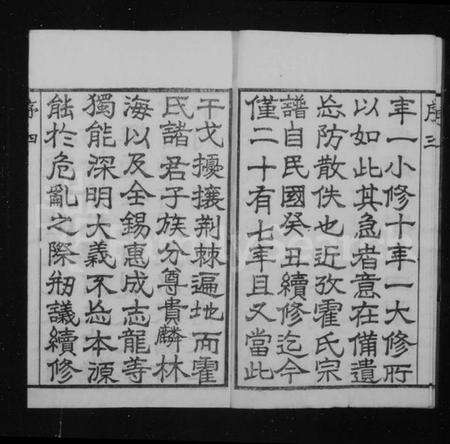 序三
年一小修十年一大修所
以如此其急者意在備遺
忘防散佚也近攷霍氏宗
譜自民國癸丑續修迄今
僅二十有七年且又當此
干戈擾攘荆棘遍地而霍
氏諸君子族分尊貴麟林
海以及全錫惠成志龍等
獨能深明大義不忘本源
能於危亂之際刱議續修
序四